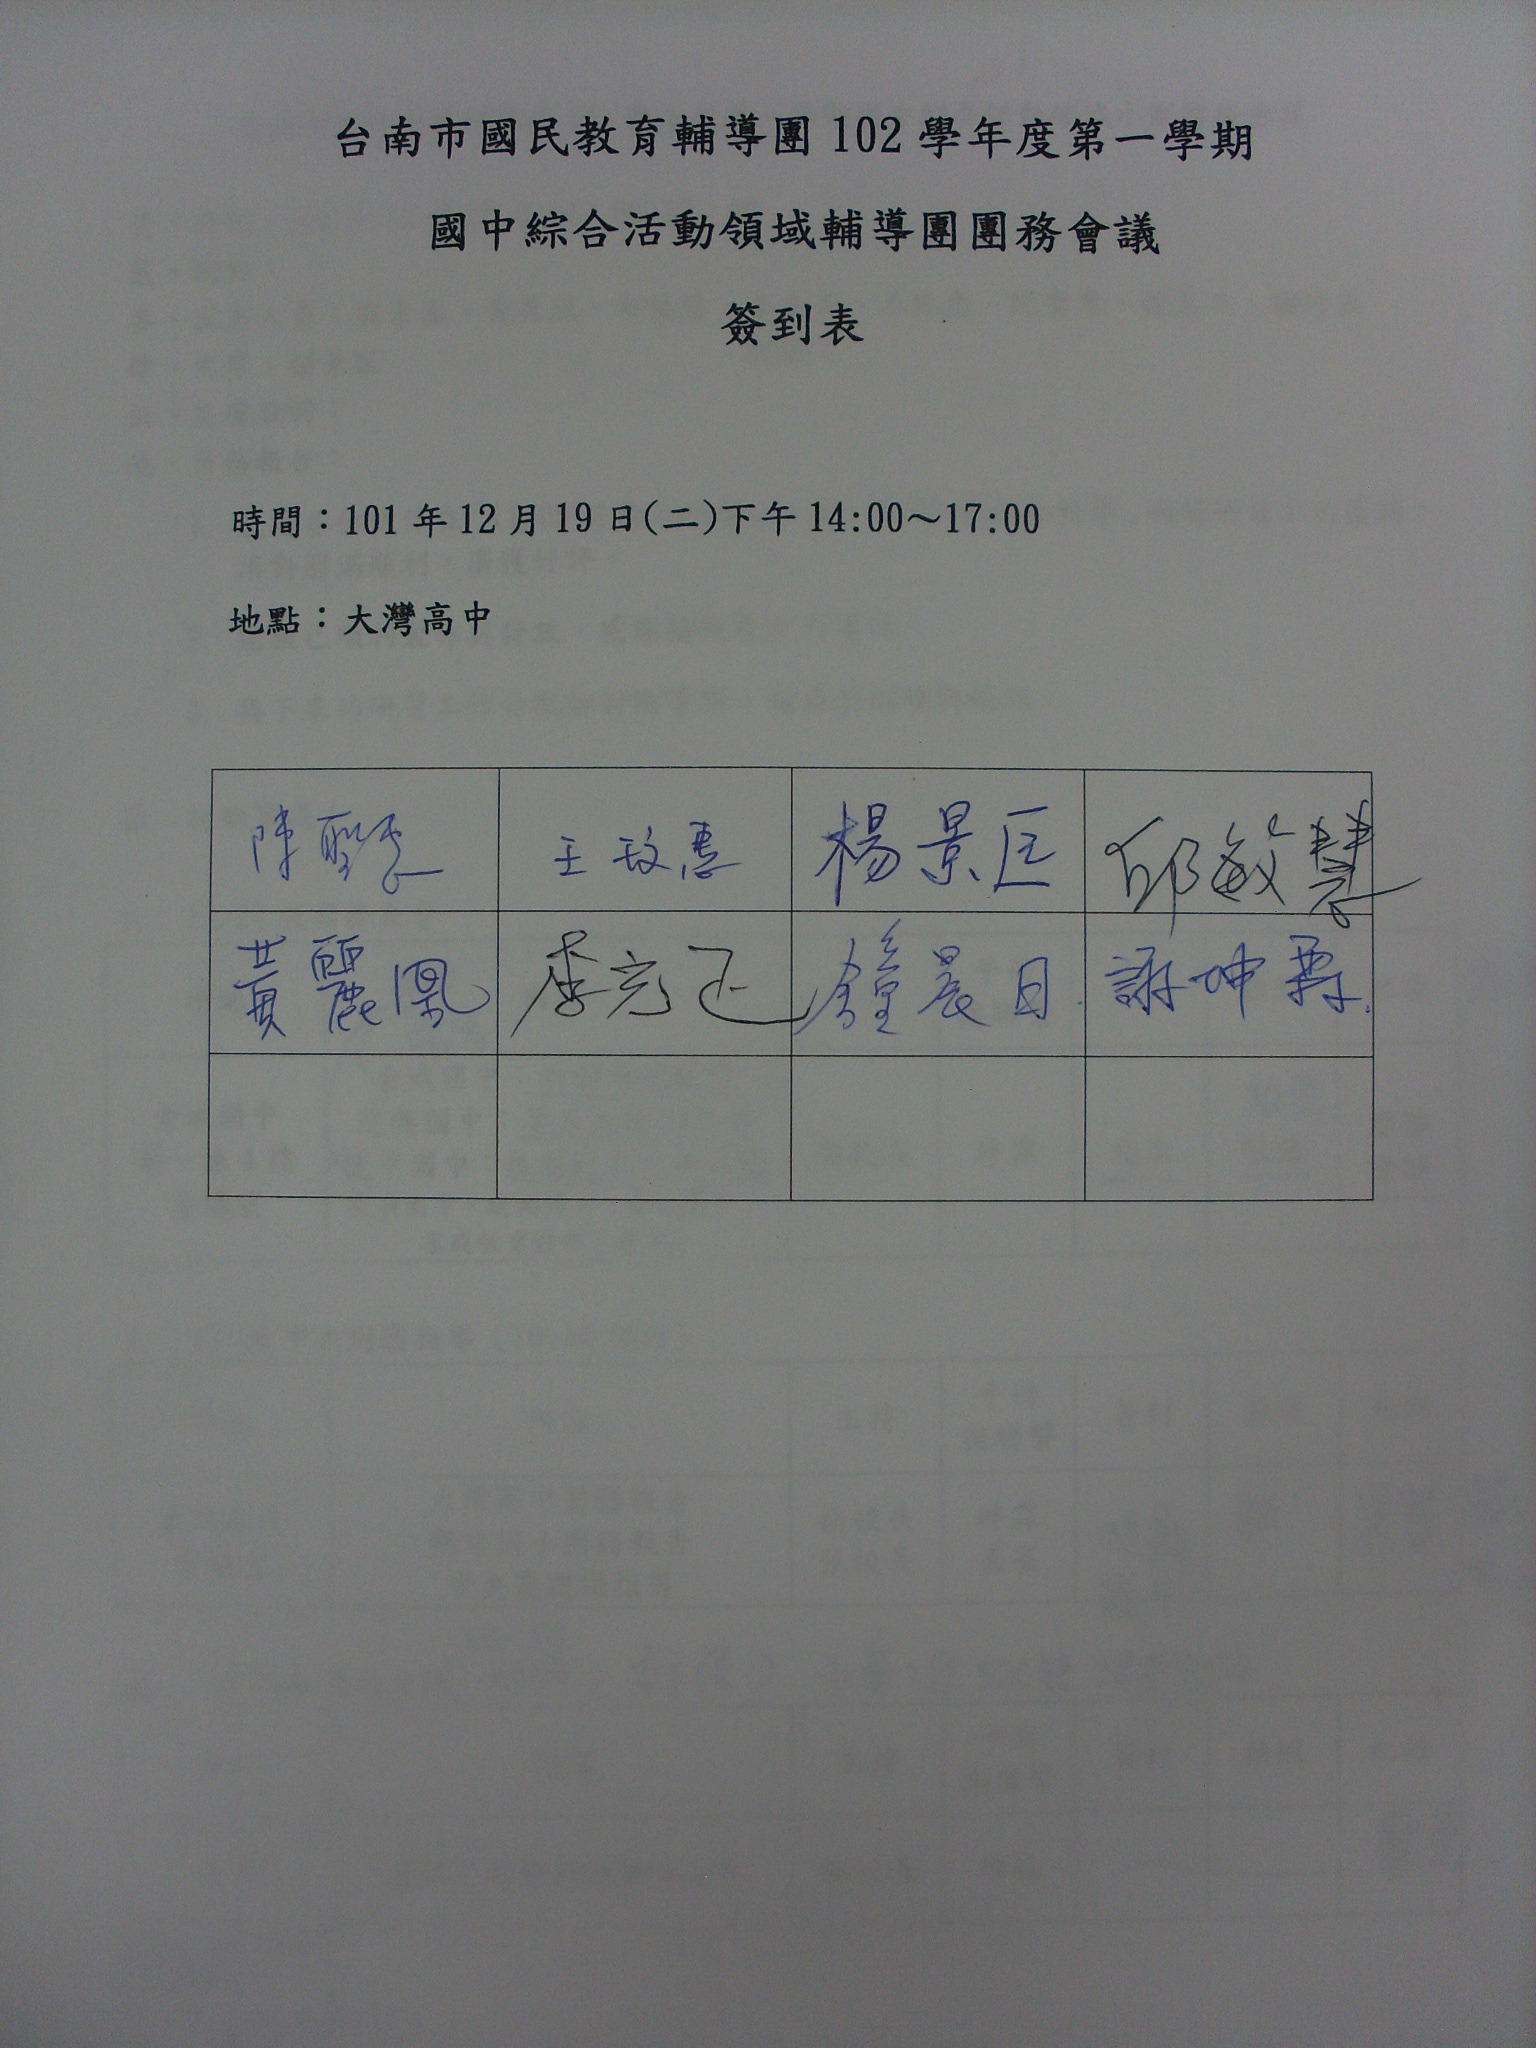 台南市國民教育輔導團102學年度第一學期
國中綜合活動領域輔導團團務會議
簽到表
時間：101年12月19日(二)下午14:00～17:00
地點：大灣高中
陳 王玟惠 楊景匡 邱敏慧
黃麗鳳 李 鐘晨日 謝坤霖